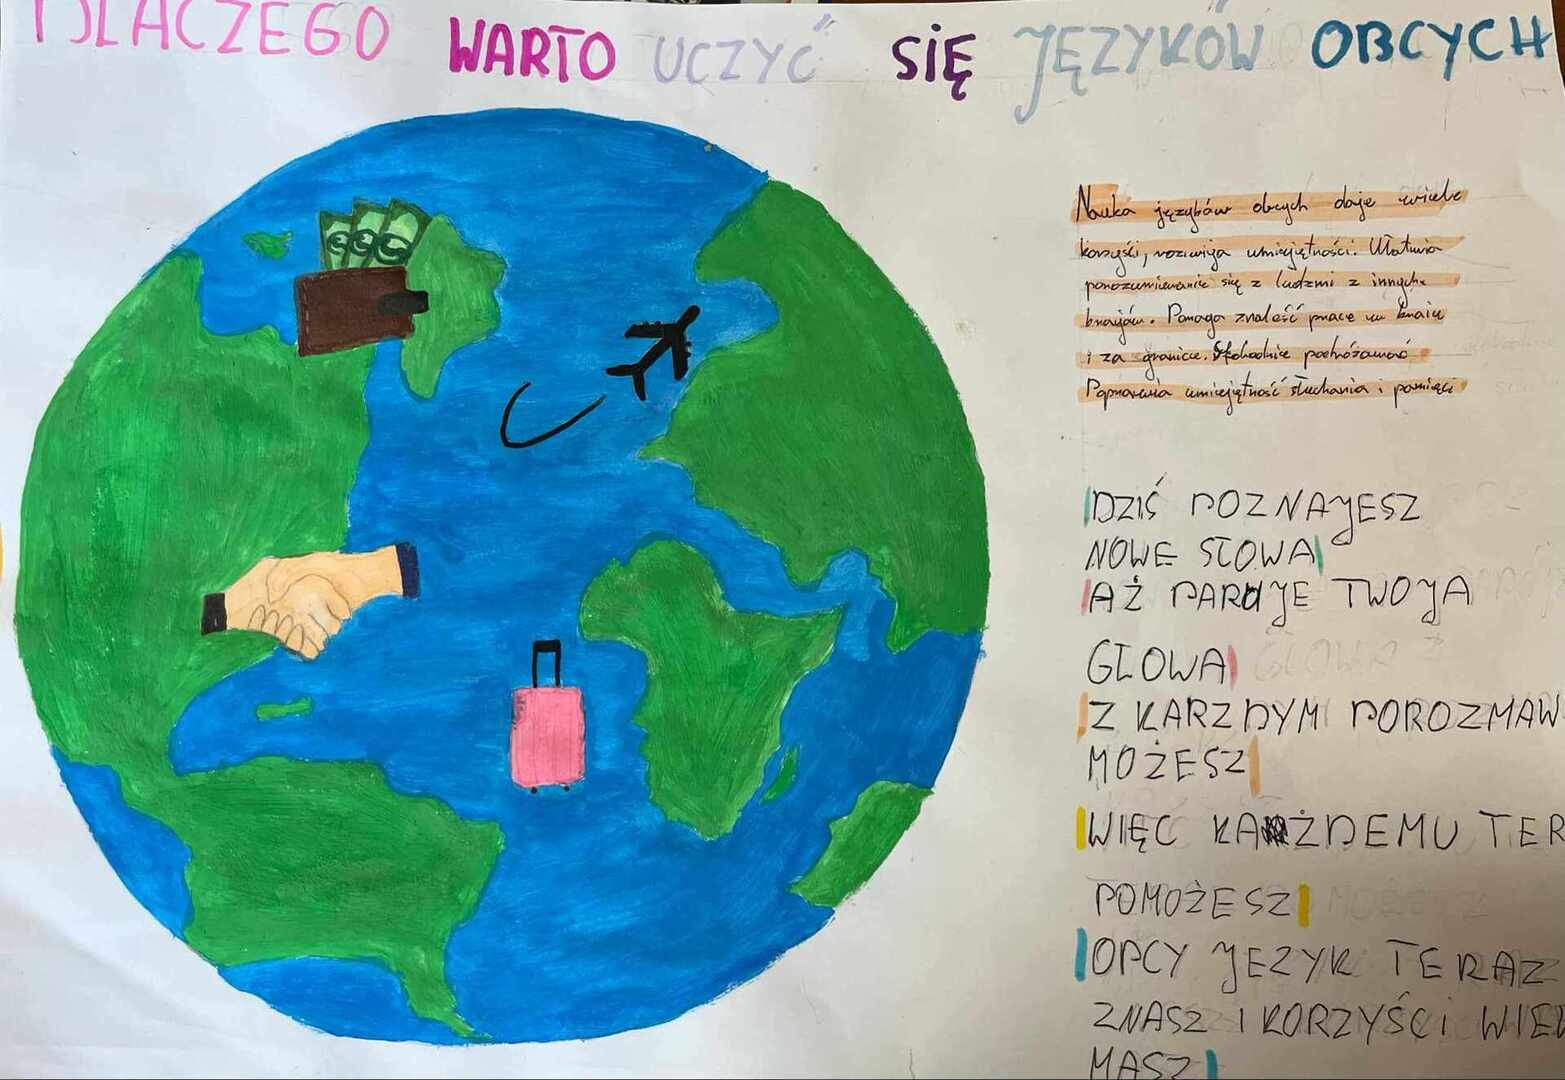 DLACZEGO WARTO UCZYĆ SIĘ JĘZYKÓW OBCYCH
Nauka języków obcych daje wiele
korzyści, rozwija umiejętności. Ułatwia
porozumiewanie się z ludzmi z innych
krajów. Pomaga znaleść prace w kraju
i za granice. Swobodnie podróżować
Poprawia umiejętność słuchania i pamięci
DZIŚ POZNAJESZ
NOWE SŁOWA
AŻ PARUJE TWOJA
GŁOWA
Z KARZDYM POROZMAW
MOŻESZ
WIĘC KAŻDEMU TER
POMOŻESZ
OPCY JEZYK TERAZ
ZNASZ I KORZYŚCI WIEL
MASZ